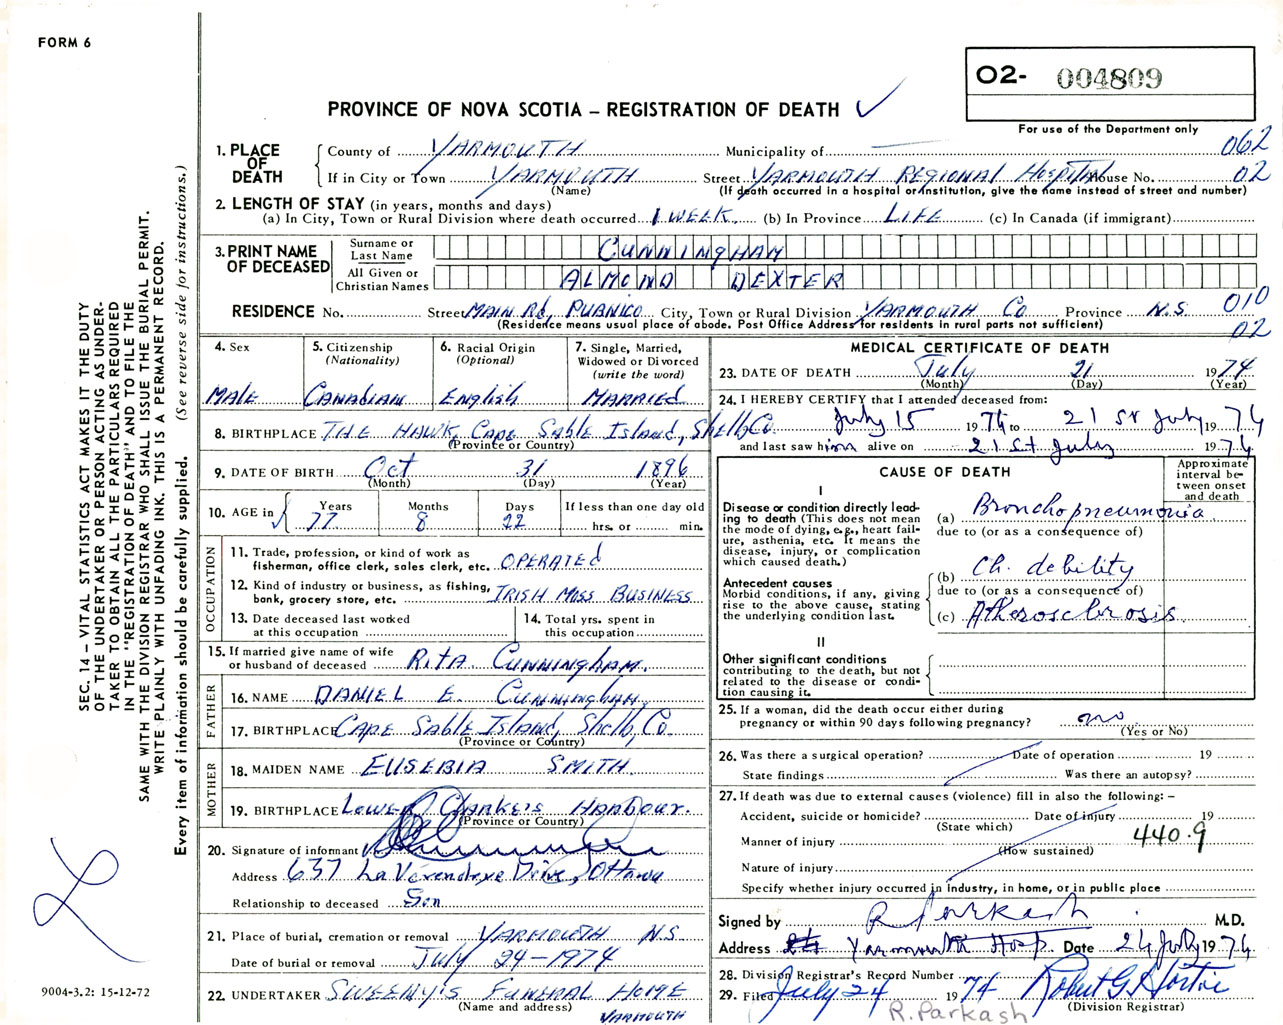 FORM 6
O2- 004809
PROVINCE OF NOVA SCOTIA – REGISTRATION OF DEATH ✓
For use of the Department only
1. PLACE OF DEATH
County of YARMOUTH Municipality of — 062
If in City or Town YARMOUTH Street YARMOUTH REGIONAL HOSPITAL House No. 02
(Name) (If death occurred in a hospital or institution, give the name instead of street and number)
2. LENGTH OF STAY (in years, months and days)
(a) In City, Town or Rural Division where death occurred 1 WEEK (b) In Province LIFE (c) In Canada (if immigrant)
3. PRINT NAME OF DECEASED
Surname or Last Name CUNNINGHAM
All Given or Christian Names ALMOND DEXTER
RESIDENCE No. Street MAIN Rd, PUBNICO City, Town or Rural Division YARMOUTH Co Province N.S. 010
(Residence means usual place of abode. Post Office Address for residents in rural parts not sufficient) 02
4. Sex
MALE
5. Citizenship
(Nationality)
CANADIAN
6. Racial Origin
(Optional)
English
7. Single, Married,
Widowed or Divorced
(write the word)
MARRIED
8. BIRTHPLACE THE HAWK, Cape Sable Island, Shelb, Co.
(Province or Country)
9. DATE OF BIRTH Oct 31 1896
(Month) (Day) (Year)
10. AGE in Years Months Days If less than one day old
77 8 22 hrs. or min.
OCCUPATION
11. Trade, profession, or kind of work as
fisherman, office clerk, sales clerk, etc. OPERATED
12. Kind of industry or business, as fishing,
bank, grocery store, etc. IRISH MOSS BUSINESS
13. Date deceased last worked
at this occupation
14. Total yrs. spent in
this occupation
15. If married give name of wife
or husband of deceased RITA CUNNINGHAM.
FATHER
16. NAME DANIEL E. CUNNINGHAM,
17. BIRTHPLACE CAPE SABLE ISLAND, Shelb, Co.
(Province or Country)
MOTHER
18. MAIDEN NAME EUSEBIA SMITH.
19. BIRTHPLACE LOWER CLARKE'S HARBOUR.
(Province or Country)
20. Signature of informant
Address 637 La Vérendrye Drive, Ottawa
Relationship to deceased Son
21. Place of burial, cremation or removal YARMOUTH N.S
Date of burial or removal July 24-1974
22. UNDERTAKER SWEENY'S FUNERAL HOME
(Name and address) YARMOUTH
MEDICAL CERTIFICATE OF DEATH
23. DATE OF DEATH July 21 1974
(Month) (Day) (Year)
24. I HEREBY CERTIFY that I attended deceased from:
July 15 1974 to 21 st July 1974
and last saw him alive on 21st July 1974
CAUSE OF DEATH
Approximate
interval be-
tween onset
and death
I
Disease or condition directly lead-
ing to death (This does not mean
the mode of dying, e.g., heart fail-
ure, asthenia, etc. It means the
disease, injury, or complication
which caused death.)
(a) Bronchopneumonia
due to (or as a consequence of)
Antecedent causes
Morbid conditions, if any, giving
rise to the above cause, stating
the underlying condition last.
(b) Ch. debility
due to (or as a consequence of)
(c) Atherosclerosis
II
Other significant conditions
contributing to the death, but not
related to the disease or condi-
tion causing it.
25. If a woman, did the death occur either during
pregnancy or within 90 days following pregnancy? no
(Yes or No)
26. Was there a surgical operation? Date of operation 19
State findings Was there an autopsy?
27. If death was due to external causes (violence) fill in also the following: –
Accident, suicide or homicide? Date of injury 19
(State which)
Manner of injury 440.9
(How sustained)
Nature of injury
Specify whether injury occurred in industry, in home, or in public place
Signed by R Parkash M.D.
Address Yarmouth Hosp. Date 24 July 1974
28. Division Registrar's Record Number
29. Filed July 24 1974 Robert G Horton
(Division Registrar)
R. Parkash
SEC. 14 – VITAL STATISTICS ACT MAKES IT THE DUTY
OF THE UNDERTAKER OR PERSON ACTING AS UNDER-
TAKER TO OBTAIN ALL THE PARTICULARS REQUIRED
IN THE "REGISTRATION OF DEATH" AND TO FILE THE
SAME WITH THE DIVISION REGISTRAR WHO SHALL ISSUE THE BURIAL PERMIT.
WRITE PLAINLY WITH UNFADING INK. THIS IS A PERMANENT RECORD.
Every item of information should be carefully supplied. (See reverse side for instructions.)
9004-3.2: 15-12-72